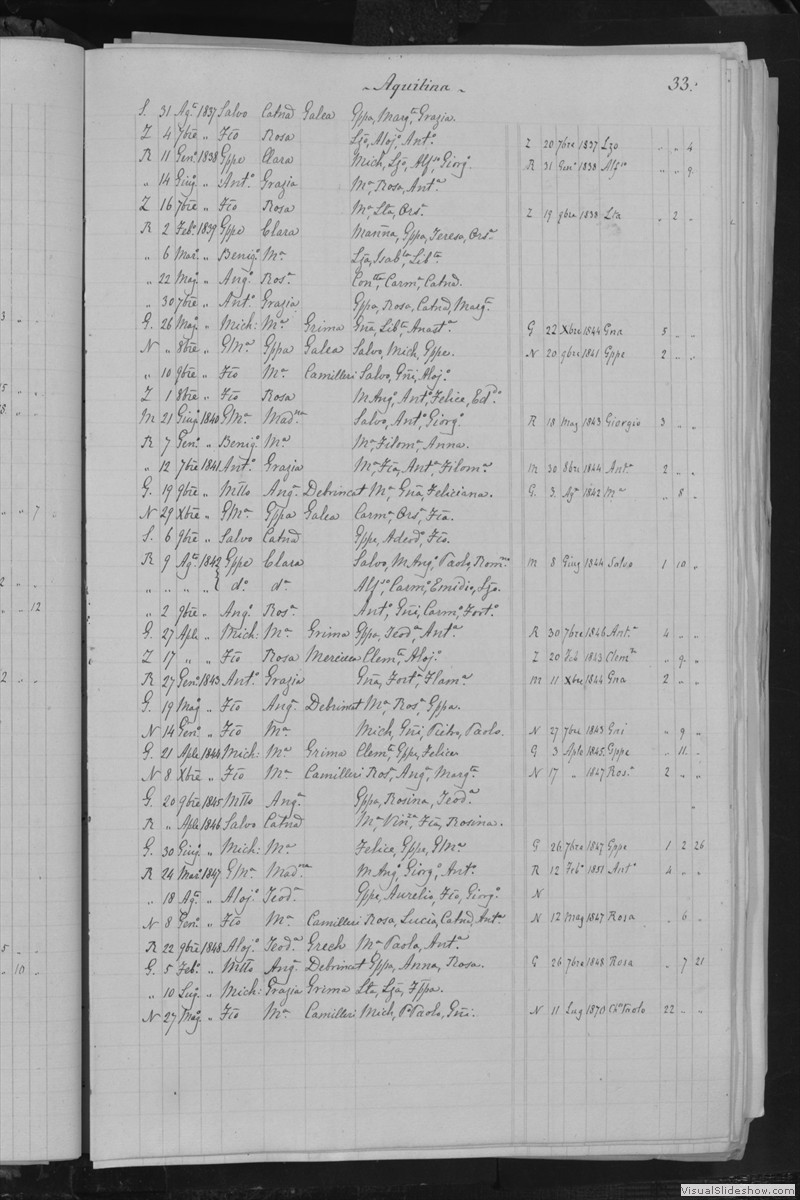 - Aquilina - 33.
S. 31 Agº 1837 Salvo Catnd Galea Gppa, Margª, Grazia.
Z 4 7bre " Fco Rosa Lzo, Aloj., Antº. Z 20 7bre 1837 Lzo " " 4
R 11 Genº 1838 Gppe Clara Mich, Lzo, Alfso, Giorgº. R 31 Genº 1838 Alfso " " 9.
" 14 Giugº " Antº. Grazia Mª, Rosa, Antª
Z 16 7bre " Fco Rosa Mª Lta, Orsª. Z 19 9bre 1838 Lta " 2 "
R 2 Febº 1839 Gppe Clara Marina, Gppa, Teresa, Orsª
" 6 Marº " Benigº Mª Lza, Isabla, Libª.
" 22 Magº " Angº. Rosª. Contta, Carmª, Catnd.
" 30 7bre " Antº. Grazia Gppa, Rosa, Catnd, Margª
G. 26 Magº " Mich: Mª Grima Gna, Libª, Anastª G 22 Xbre 1844 Gna 5 " "
N " 8bre " GMª Gppa Galea Salvo, Mich, Gppe. N 20 9bre 1841 Gppe 2 " "
" 10 9bre " Fco Mª Camilleri Salvo, Gni, Aloj.
Z 1 8bre " Fco Rosa M Angº, Antº, Felice, Eddo
M 21 Giugº 1840 GMª Madna Salvo, Antº, Giorgº R 18 Mag 1843 Giorgio 3 " "
R 7 Genº " Benigº Mª Mª, Filomª, Anna.
" 12 7bre 1841 Antº. Grazia Mª, Fca, Antª, Filomª M 30 8bre 1844 Antª 2 " "
G. 19 9bre " Mtto Angª Debrincat Mª, Gna, Feliciana. G. 3 Agº 1842 Mª " 8 "
N 29 Xbre " GMª Gppa Galea Carmª, Orsª, Fca.
S. 6 9bre " Salvo Catnd Gppe, Adeodº, Fco.
R 9 Agº 1842 Gppe Clara Salvo, M Angº, Paolo, Romno M 8 Giug 1844 Salvo 1 10 "
" " " " dº. dª. Alfso, Carmº, Emidio, Lzo.
" 2 9bre " Angº. Rosª. Antº, Gni, Carmº, Fortº.
G. 27 Aple " Mich: Mª Grima Gppa, Teodª, Antª R 30 7bre 1846 Antª 4 " "
Z 17 " " Fco Rosa Mercieca Clemte, Aloj. Z 20 Feb 1843 Clemte " 9. "
R 27 Genº 1843 Antº. Grazia Gna, Fortª, Flamª M 11 Xbre 1844 Gna 2 " "
G. 19 Mag " Fco Angª Debrincat Mª, Rosª, Gppa.
N 14 Genº " Fco Mª Mich, Gni, Pietro, Paolo. N 27 7bre 1843 Gni " 9 "
G. 21 Aple 1844 Mich: Mª Grima Clemte, Gppe, Felice G 3 Aple 1845 Gppe " 11. "
N 8 Xbre " Fco Mª Camilleri Rosª, Angª, Margª. N 17 " 1847 Rosª. 2 " "
G. 20 9bre 1845 Mtto Angª Gppa, Rosina, Teodª
R " Aple 1846 Salvo Catnd Mª, Vinza, Fca, Rosina.
G. 30 Giugº " Mich: Mª Felice, Gppe, GMª G 26 7bre 1847 Gppe 1 2 26
R 24 Marº 1847 GMª Madna M Angº, Giorgº, Antº. R 12 Febº 1851 Antº 4 " "
" 18 Agº " Alojº Teodª Gppe, Aurelio, Fco, Giorgº N
N 8 Genº " Fco Mª Camilleri Rosa, Lucia, Catnd, Antª N 12 Mag 1847 Rosa " 6 "
R 22 9bre 1848 Alojº Teodª Grech Mª Paola, Antª.
G. 5 Febº " Mtto Angª Debrincat Gppa, Anna, Rosa. G 26 7bre 1848 Rosa " 7 21
" 10 Lugº " Mich: Grazia Grima Lta, Lza, Gppa.
N 27 Magº " Fco Mª Camilleri Mich, P. Paolo, Gni. N 11 Lug 1870 Chco Paolo 22 " "
VisualSlideshow.com